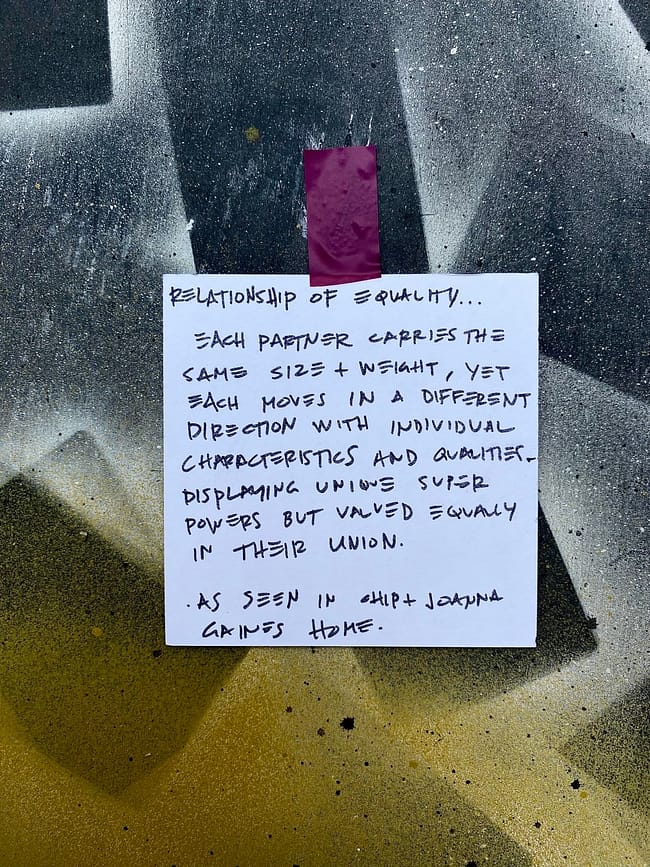 RELATIONSHIP OF EQUALITY...
EACH PARTNER CARRIES THE
SAME SIZE + WEIGHT, YET
EACH MOVES IN A DIFFERENT
DIRECTION WITH INDIVIDUAL
CHARACTERISTICS AND QUALITIES-
DISPLAYING UNIQUE SUPER
POWERS BUT VALUED EQUALLY
IN THEIR UNION.
. AS SEEN IN CHIP + JOANNA
GAINES HOME.